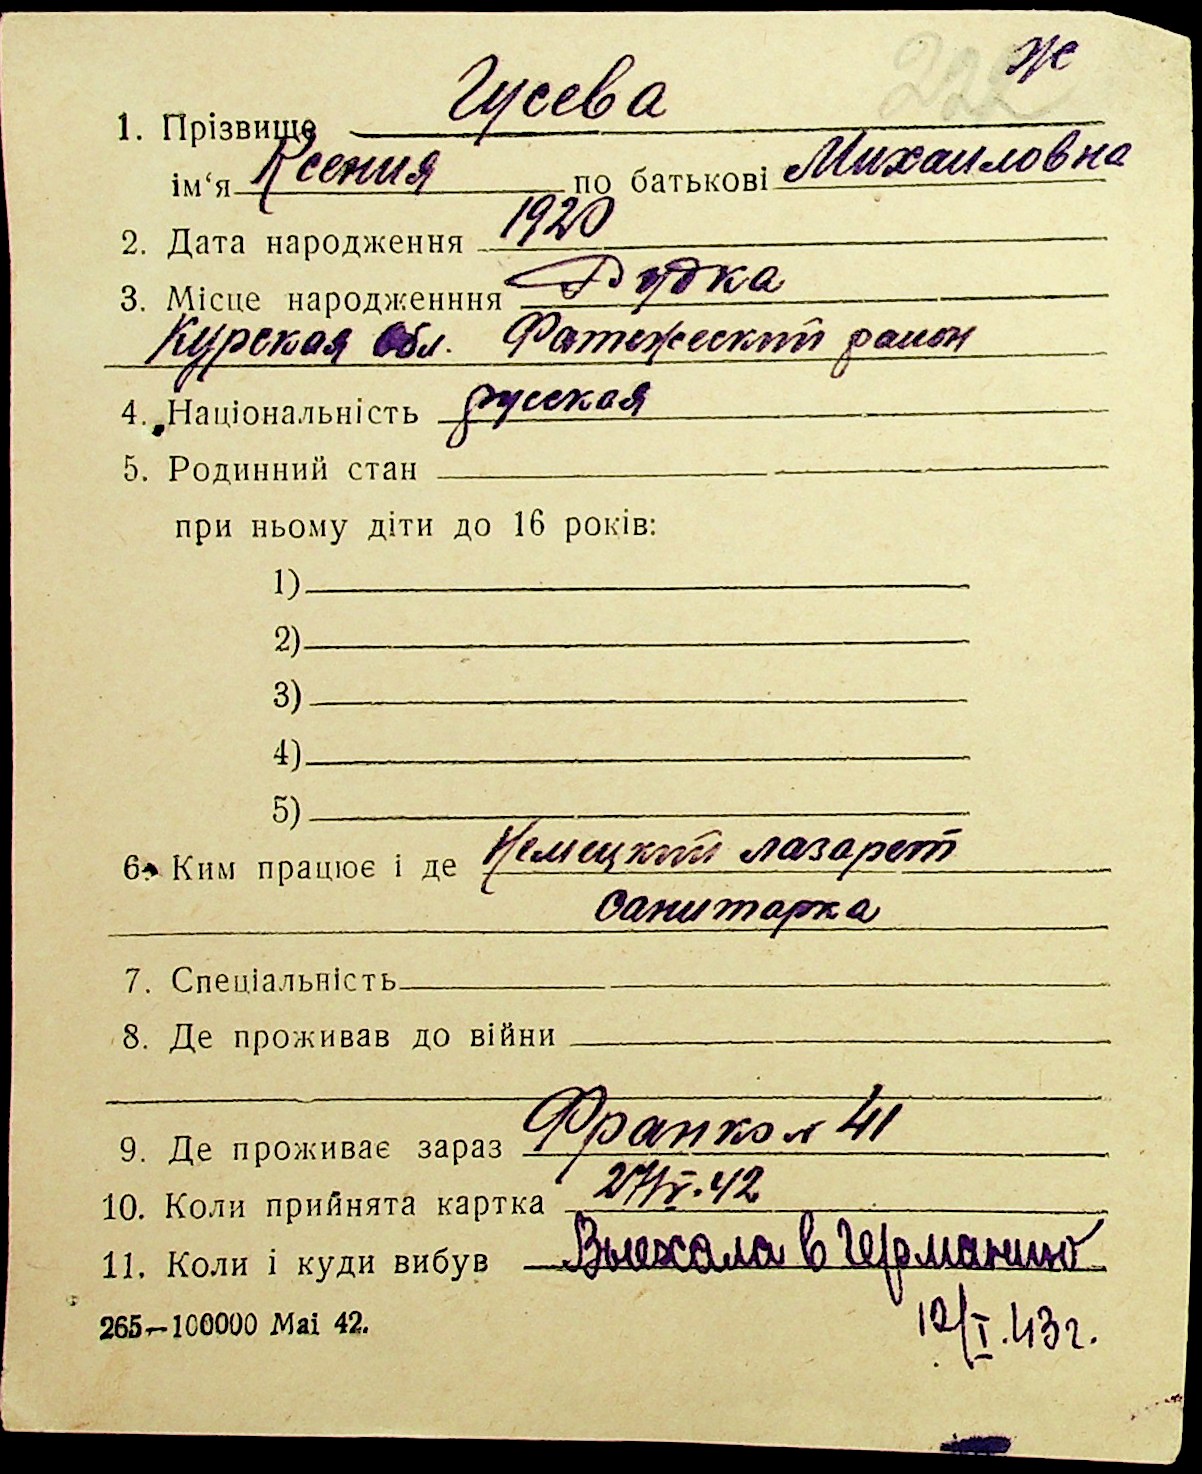 222 Ж
1. Прізвище Гусева
ім‘я Ксения по батькові Михаиловна
2. Дата народження 1920
3. Місце народженння Дудка
Курская обл. Фатежеский район
4. Національність русская
5. Родинний стан
при ньому діти до 16 років:
1)
2)
3)
4)
5)
6. Ким працює і де Немецкий лазарет
санитарка
7. Спеціальність
8. Де проживав до війни
9. Де проживає зараз Франко 41
10. Коли прийнята картка 42
11. Коли і куди вибув Выехала в Германию
265—100000 Mai 42.
12/I.43г.